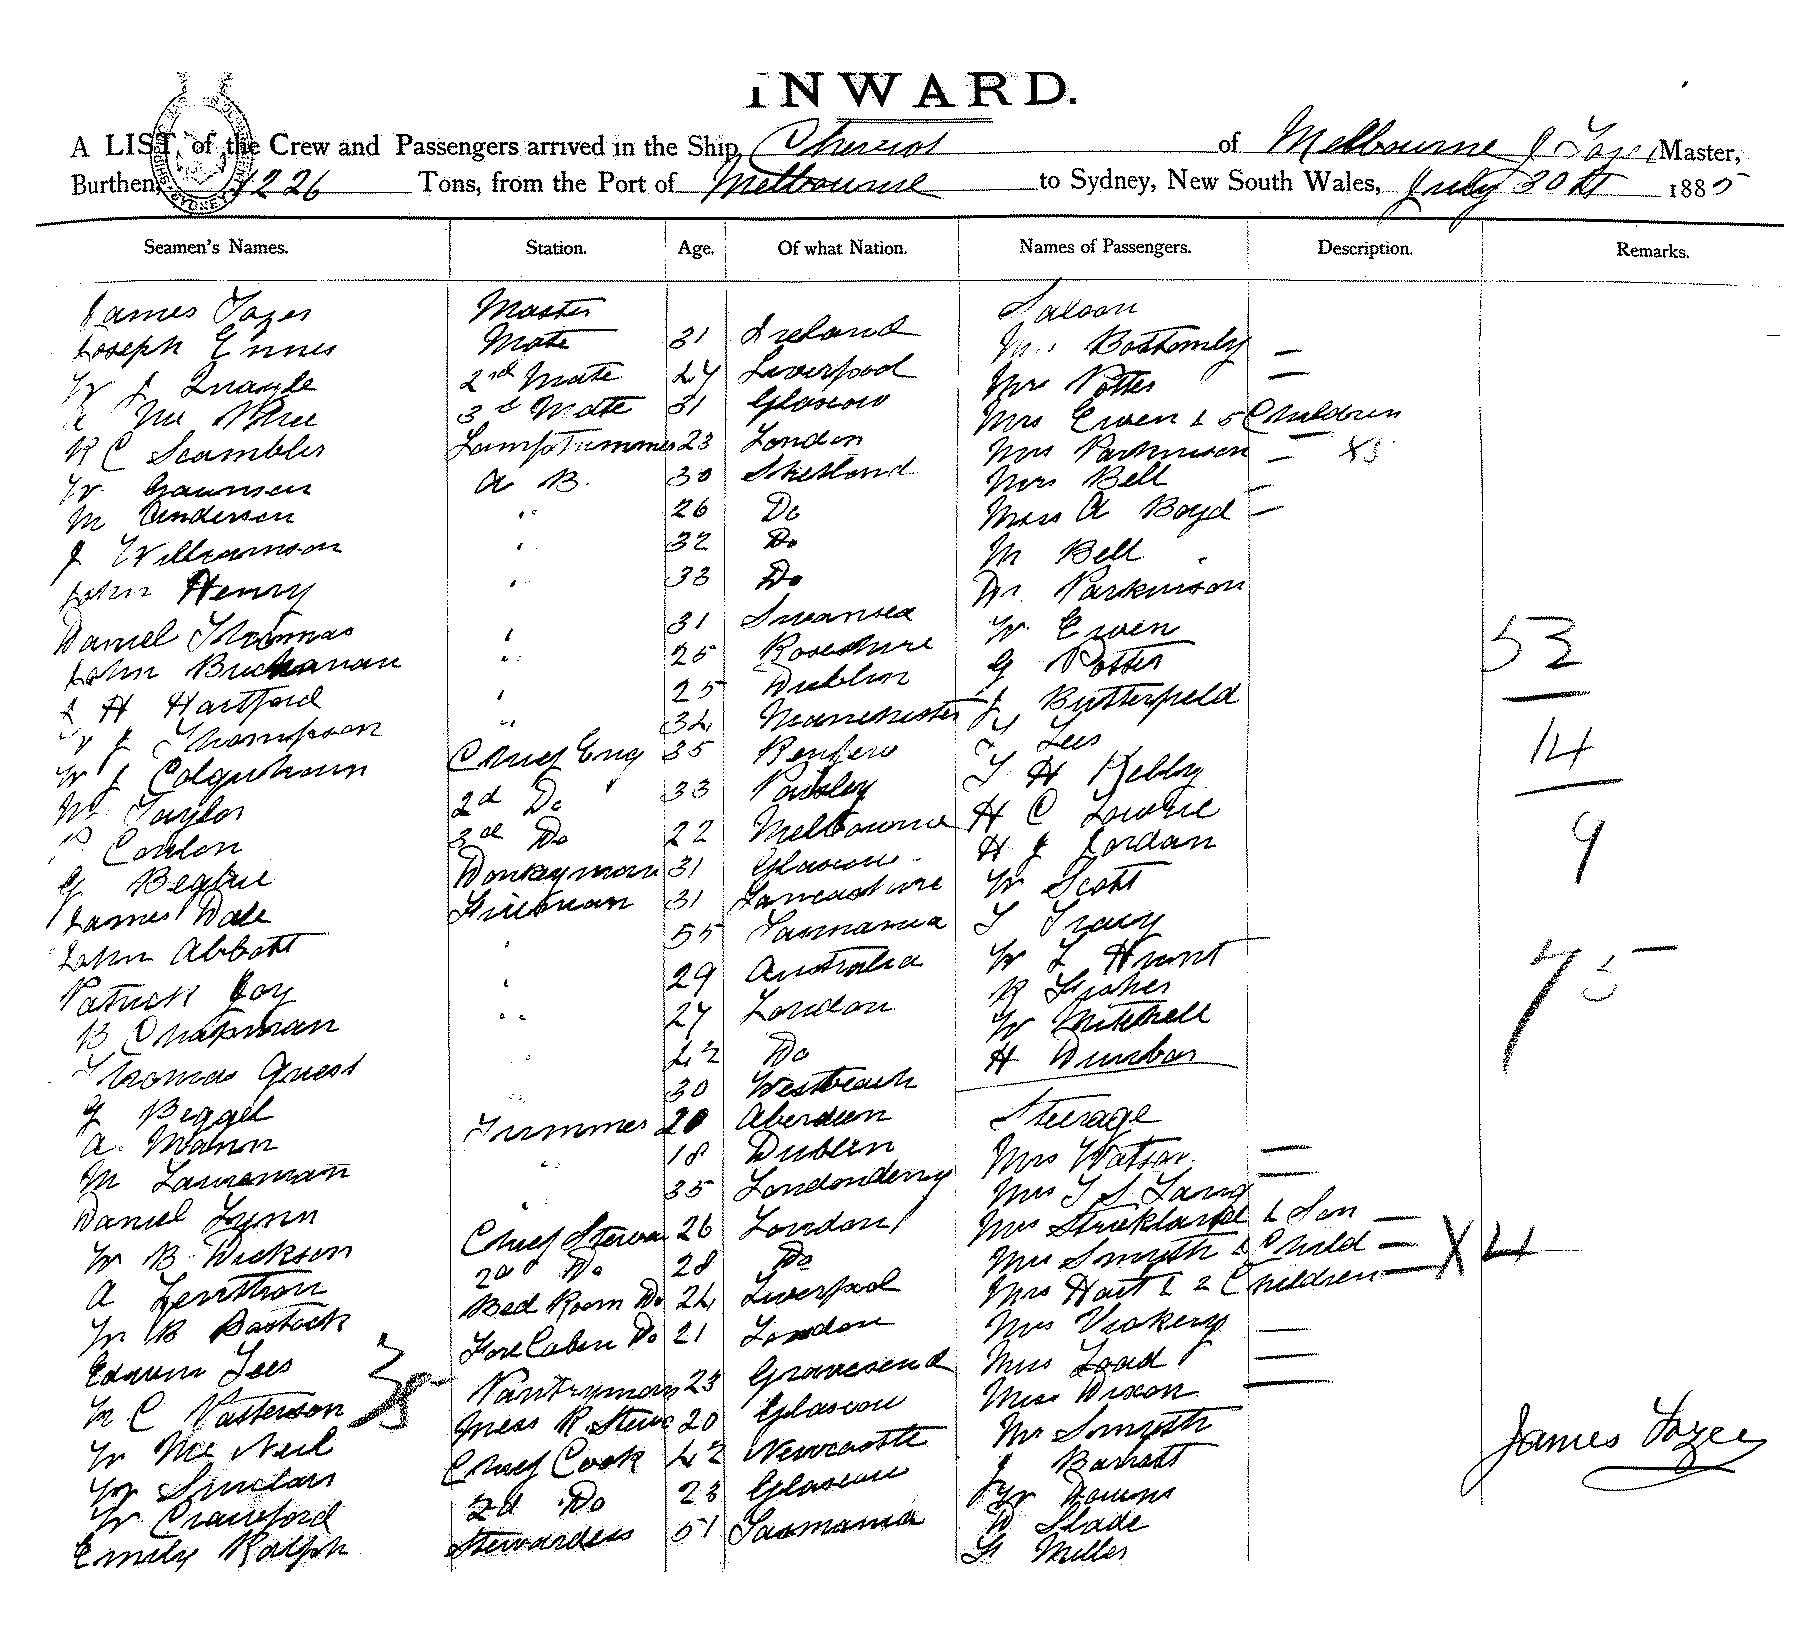 INWARD.
A LIST of the Crew and Passengers arrived in the Ship Cheviot of Melbourne J Tozer Master,
Burthen 1226 Tons, from the Port of Melbourne to Sydney, New South Wales, July 20th 1885
Seamen's Names. Station. Age. Of what Nation. Names of Passengers. Description. Remarks.
James Tozer Master Saloon
Joseph Ennes Mate 31 Ireland Mrs Bottomly —
W J Quayle 2nd Mate 27 Liverpool Mrs Potter —
Mc Phee 3d Mate 31 Glascow Mrs Ewen & 5 Children
R C Scambler Lamp Trimmer 23 London Mrs Parkinson — X5
W A B. 30 Shetland Mrs Bell —
M Anderson " 26 Do Miss A Boyd —
J Williamson " 32 Do M Bell
John Henry " 33 Do Dr. Parkinson
Daniel Thommas " 31 Swansea W Ewen
John Buchanan " 25 Rosshire G Potter
J H Hartford " 25 Dublin J Butterfield
W J Thompson " 34 Manchester Lees
W J Colquhoun Chief Eng 35 Renfero T H Kelly
W Taylor 2d Do 33 Paisley H C Lowrie
P Conlon 3d Do 22 Melbourne H J Jordan
G Begbie Donkeyman 31 Glascow W Scott
James Dale Fireman 31 Lancashire T Tracy
John Abbott " 55 Tasmania W L Hunt
Patrick Joy " 29 Australia R Fisher
B Chapman " 27 London W Mitchell
Thomas Guest " 42 Do H Dunbar
G Beggel " 30 Westbeach
A. Mann Trimmer 20 Aberdeen Steerage
M Lanneman " 18 Dublin Mrs Watson —
Daniel Lynn " 35 Londonderry Mrs T S Lang —
W B Dickson Chief Steward 26 London Mrs Strickland & Son —
A Lenttron 2d Do 28 Do Mrs Smyth & Child — X4
W B Bostock Bed Room Do 24 Liverpool Mrs Hart & 2 Children —
Edwin Lees Fore Cabin Do 21 London Mrs Vickery —
W C Patterson Pantryman 23 Gravesend Miss Load —
W Mc Neil Mess R Stewd 20 Glascow Miss Dixon —
W Sinclair Chief Cook 42 Newcastle Mr Smyth
W Crawford 2d Do 23 Glascow J Barratt
Emily Ralph Stewardess 51 Tasmania W Downs
D Slade
F Miller
38
53
14
9
75
James Tozer